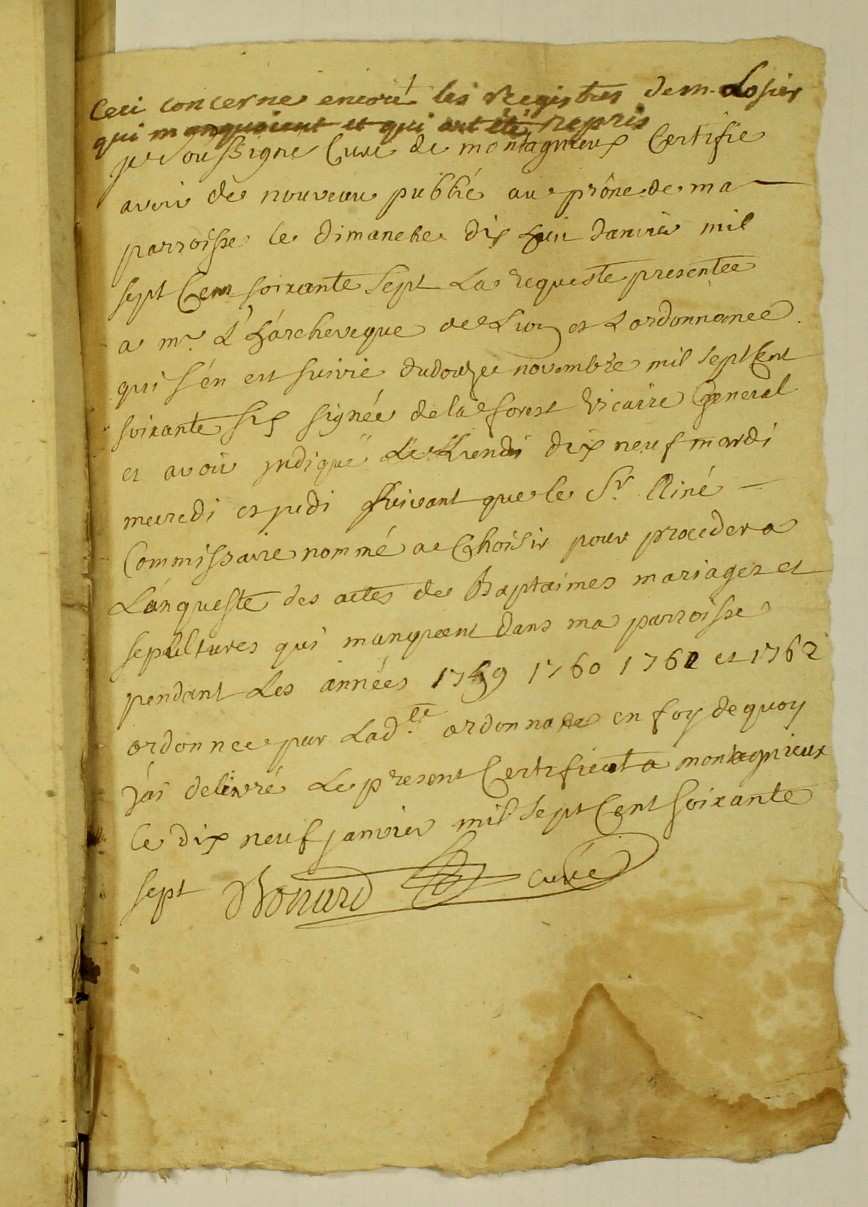 Ceci concerne encore les Registres de m. Losier
qui manquoient et qui ont été repris
je soussigné Curé de montagnieux Certifie
avoir de nouveau publié au prône de ma
parroisse le dimanche dix huit Janvier mil
sept Cent soixante sept La requeste presentée
a mr. L'harcheveque de Lion et L'ordonnance
qui s'en est suivie du douze novembre mil sept Cent
soixante six signée de la forest vicaire General
et avoir indiqué Le Lundi dix neuf mardi
mecredi et jeudi suivant que le Sr.
Commissaire nommé a Choisir pour proceder a
L'anqueste des actes de Baptaimes mariages et
sepultures qui manquent dans ma parroisse
pendant Les années 1759 1760 1761 et 1762
ordonnee par Ladte ordonnance en foy de quoy
j'ai delivré Le present Certificat a montagnieux
Ce dix neuf janvier mil sept Cent soixante
sept curé